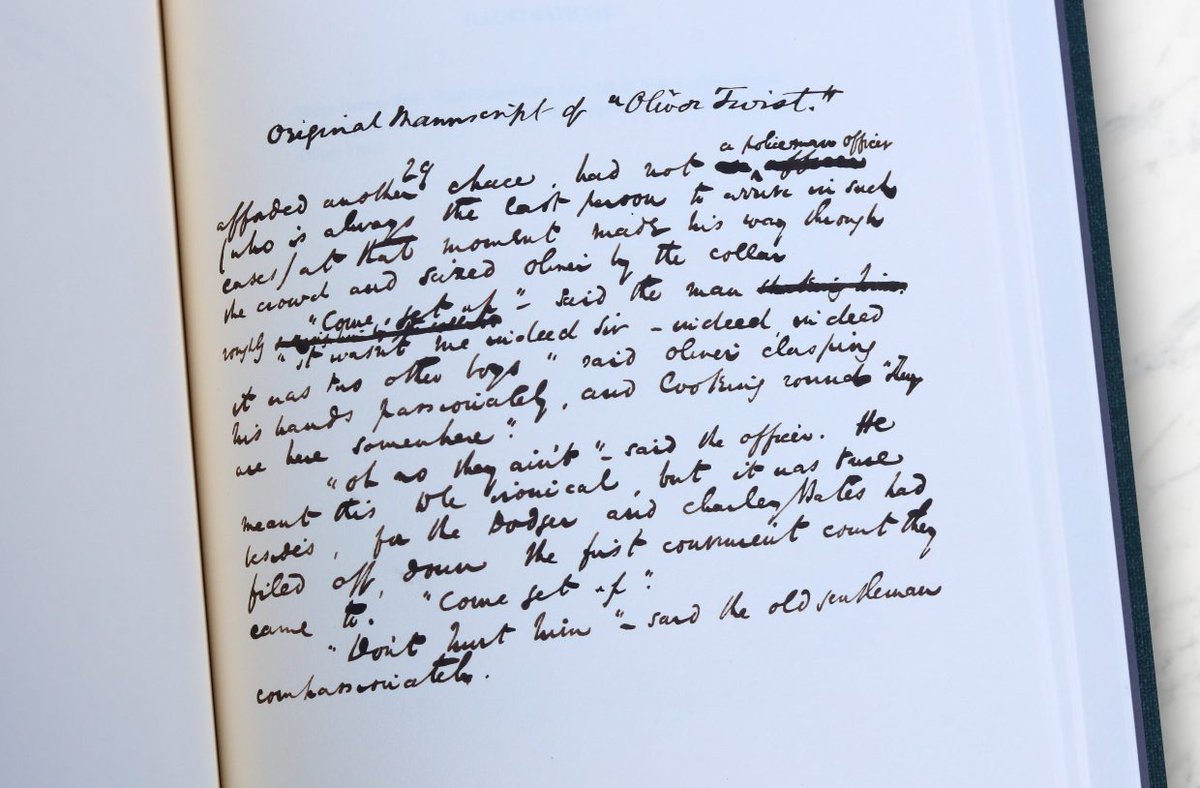 Original Manuscript of "Oliver Twist."
29
a policeman officer
afforded another chace, had not
(who is always the last person to arrive in such
cases) at that moment made his way through
the crowd and seized oliver by the collar
"Come, get up" – said the man
roughly
"It wasn't me indeed Sir – indeed, indeed
it was two other boys" said oliver clasping
his hands passionately, and looking round "they
are here somewhere".
"oh no they ain't" – said the officer. He
meant this to be ironical, but it was true
besides, for the Dodger and charley Bates had
filed off, down the first convenient court they
came to. "Come get up".
"Don't hurt him" – said the old gentleman
compassionately.